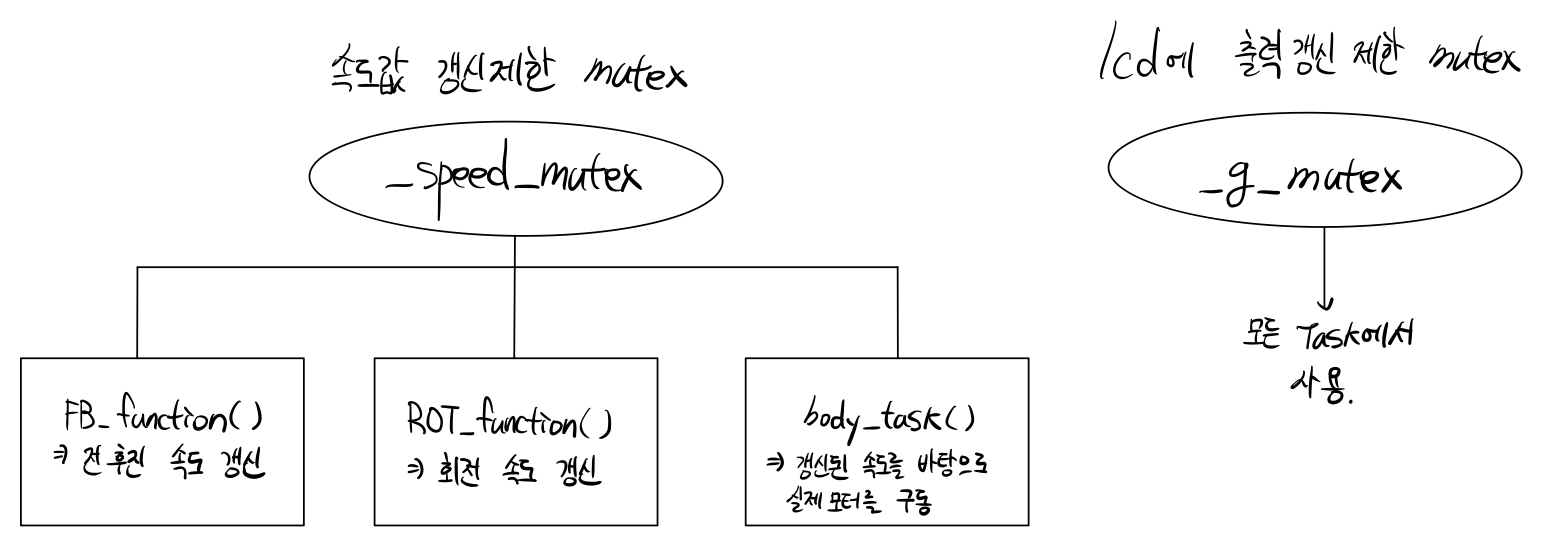 속도값 갱신제한 mutex
_speed_mutex
FB_function()
⇒ 전후진 속도 갱신
ROT_function()
⇒ 회전 속도 갱신
body_task()
⇒ 갱신된 속도를 바탕으로
실제 모터를 구동
lcd에 출력갱신 제한 mutex
_g_mutex
모든 Task에서
사용.